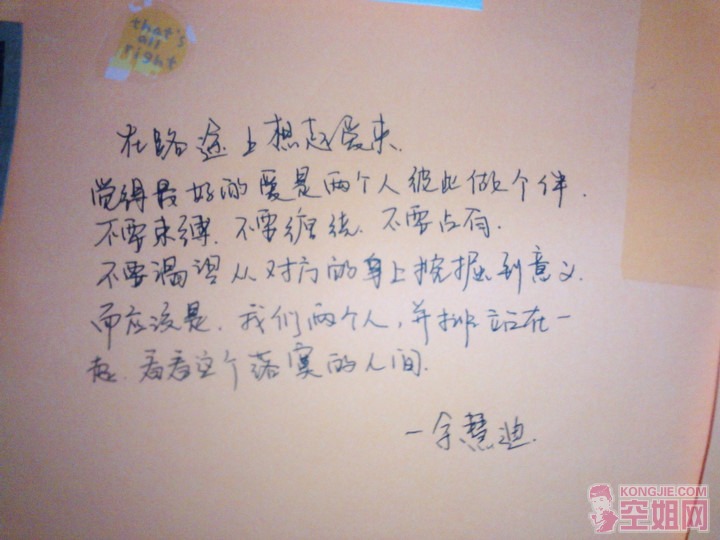 that's
all
right
在路途上想起爱来.
觉得最好的爱是两个人彼此做个伴.
不要束缚.不要缠绕.不要占有.
不要渴望从对方的身上挖掘到意义.
而应该是.我们两个人,并排站在一
起.看看这个落寞的人间.
一余慧迪.
KONGJIE.COM
空姐网